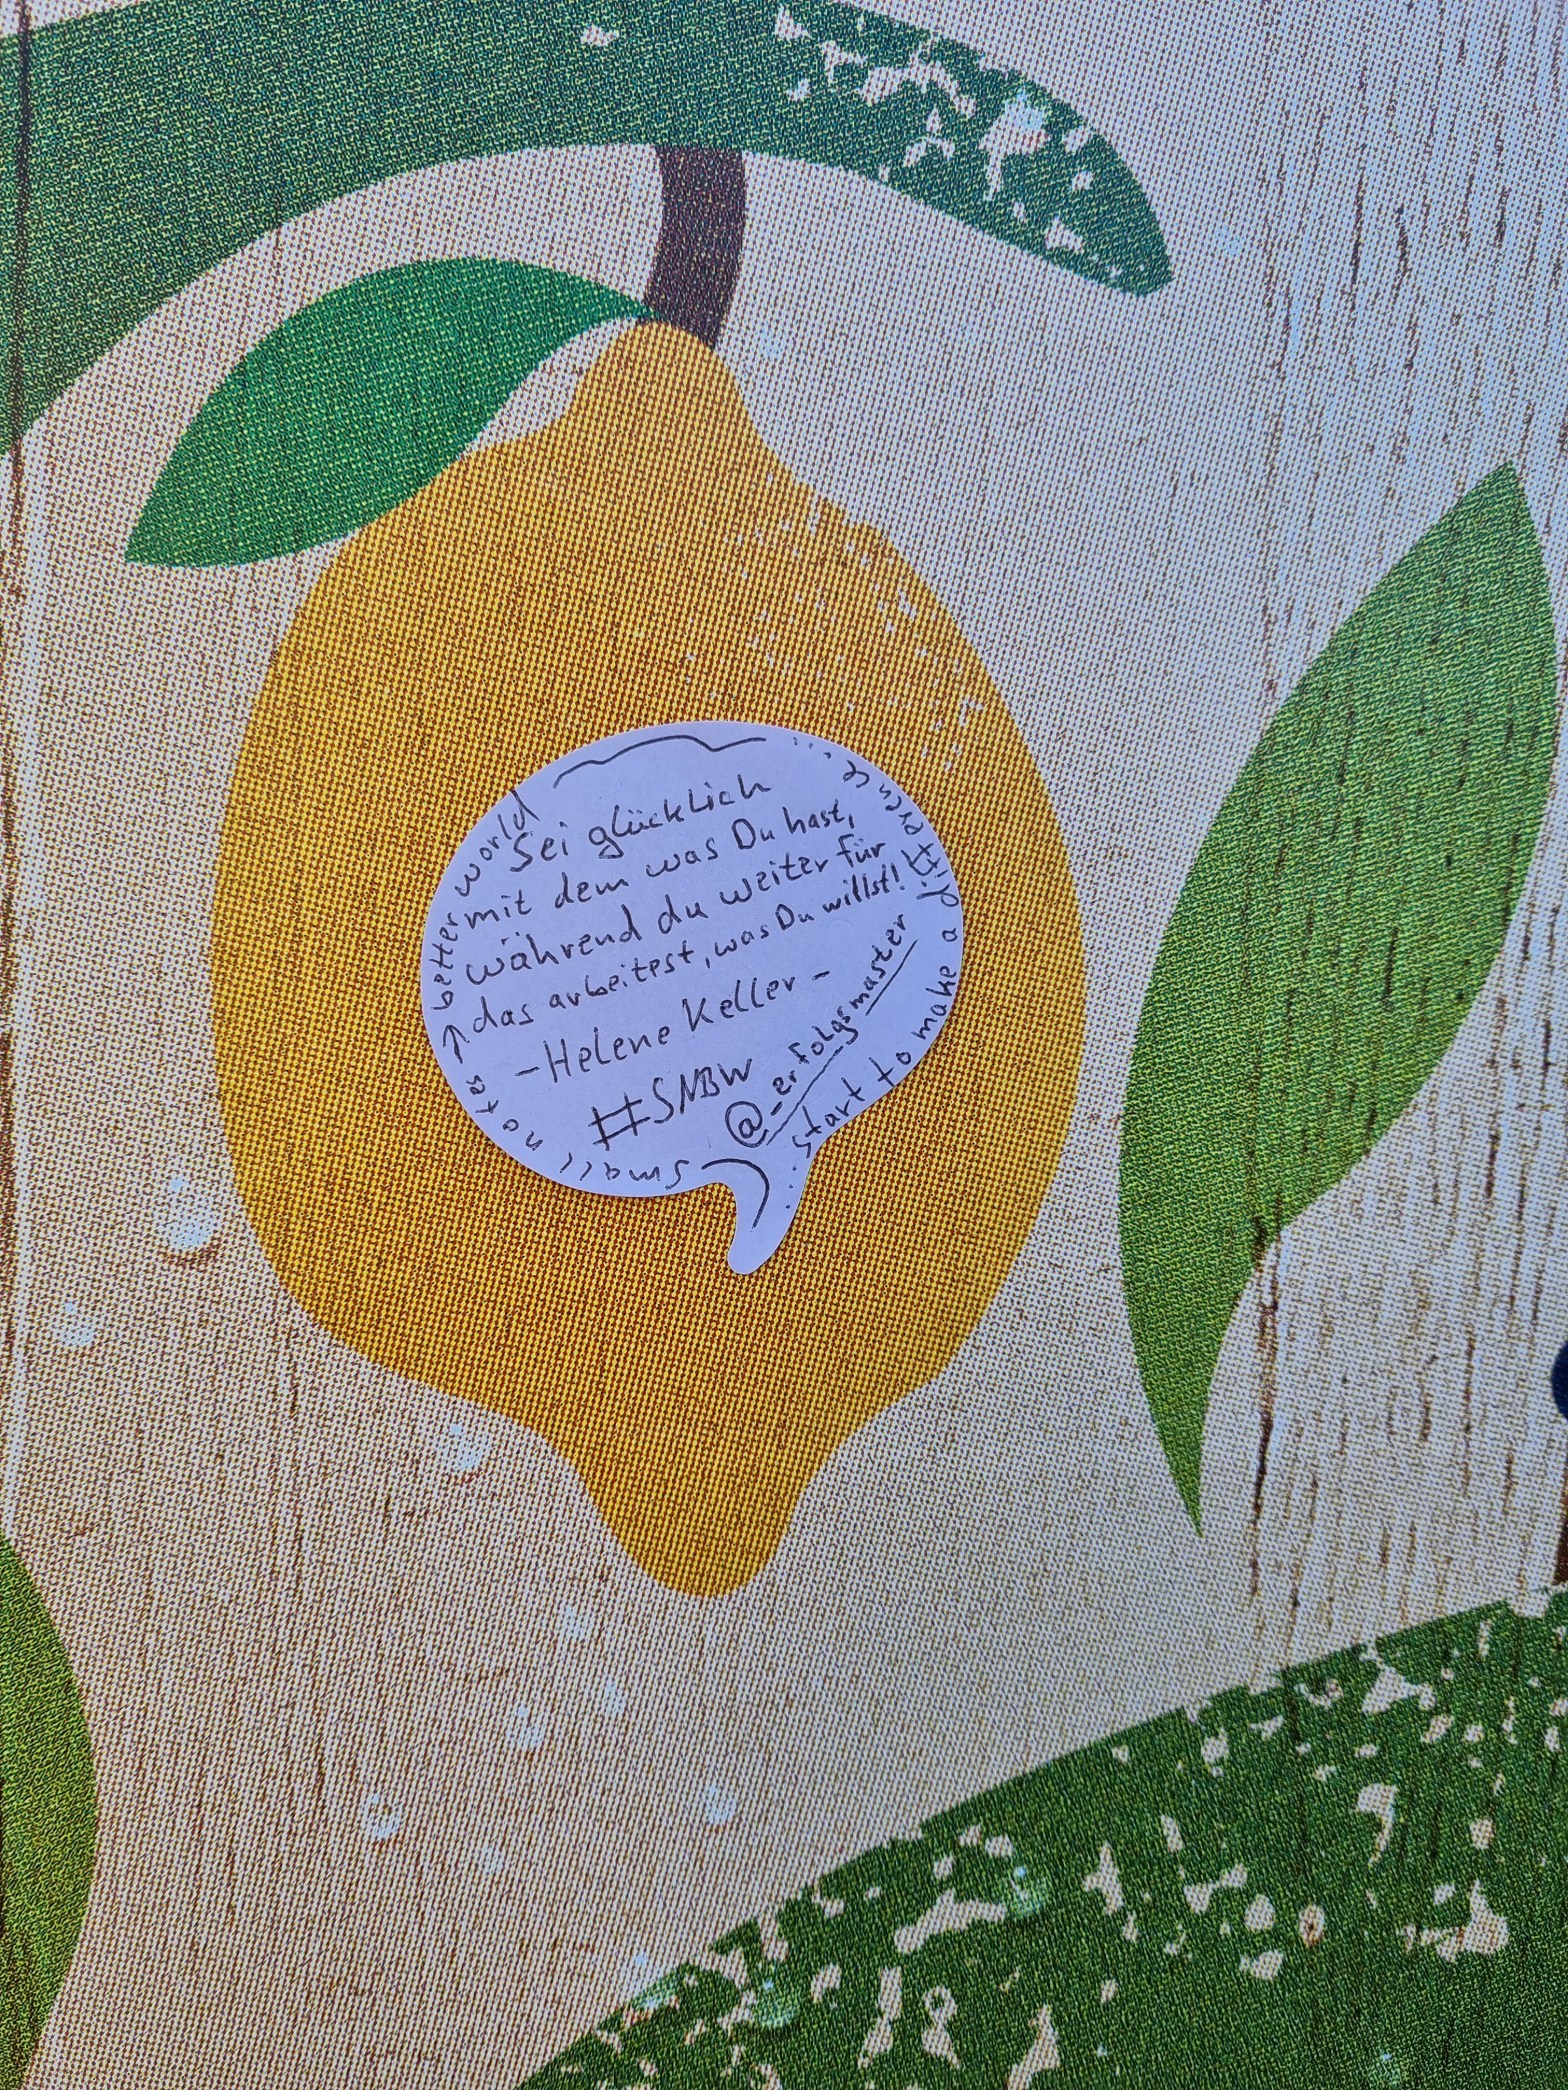 Sei glücklich
mit dem was Du hast,
während du weiter für
das arbeitest, was Du willst!
-Helene Keller-
#SNBW
@_erfolgsmaster
small notes → better world
start to make a difference...